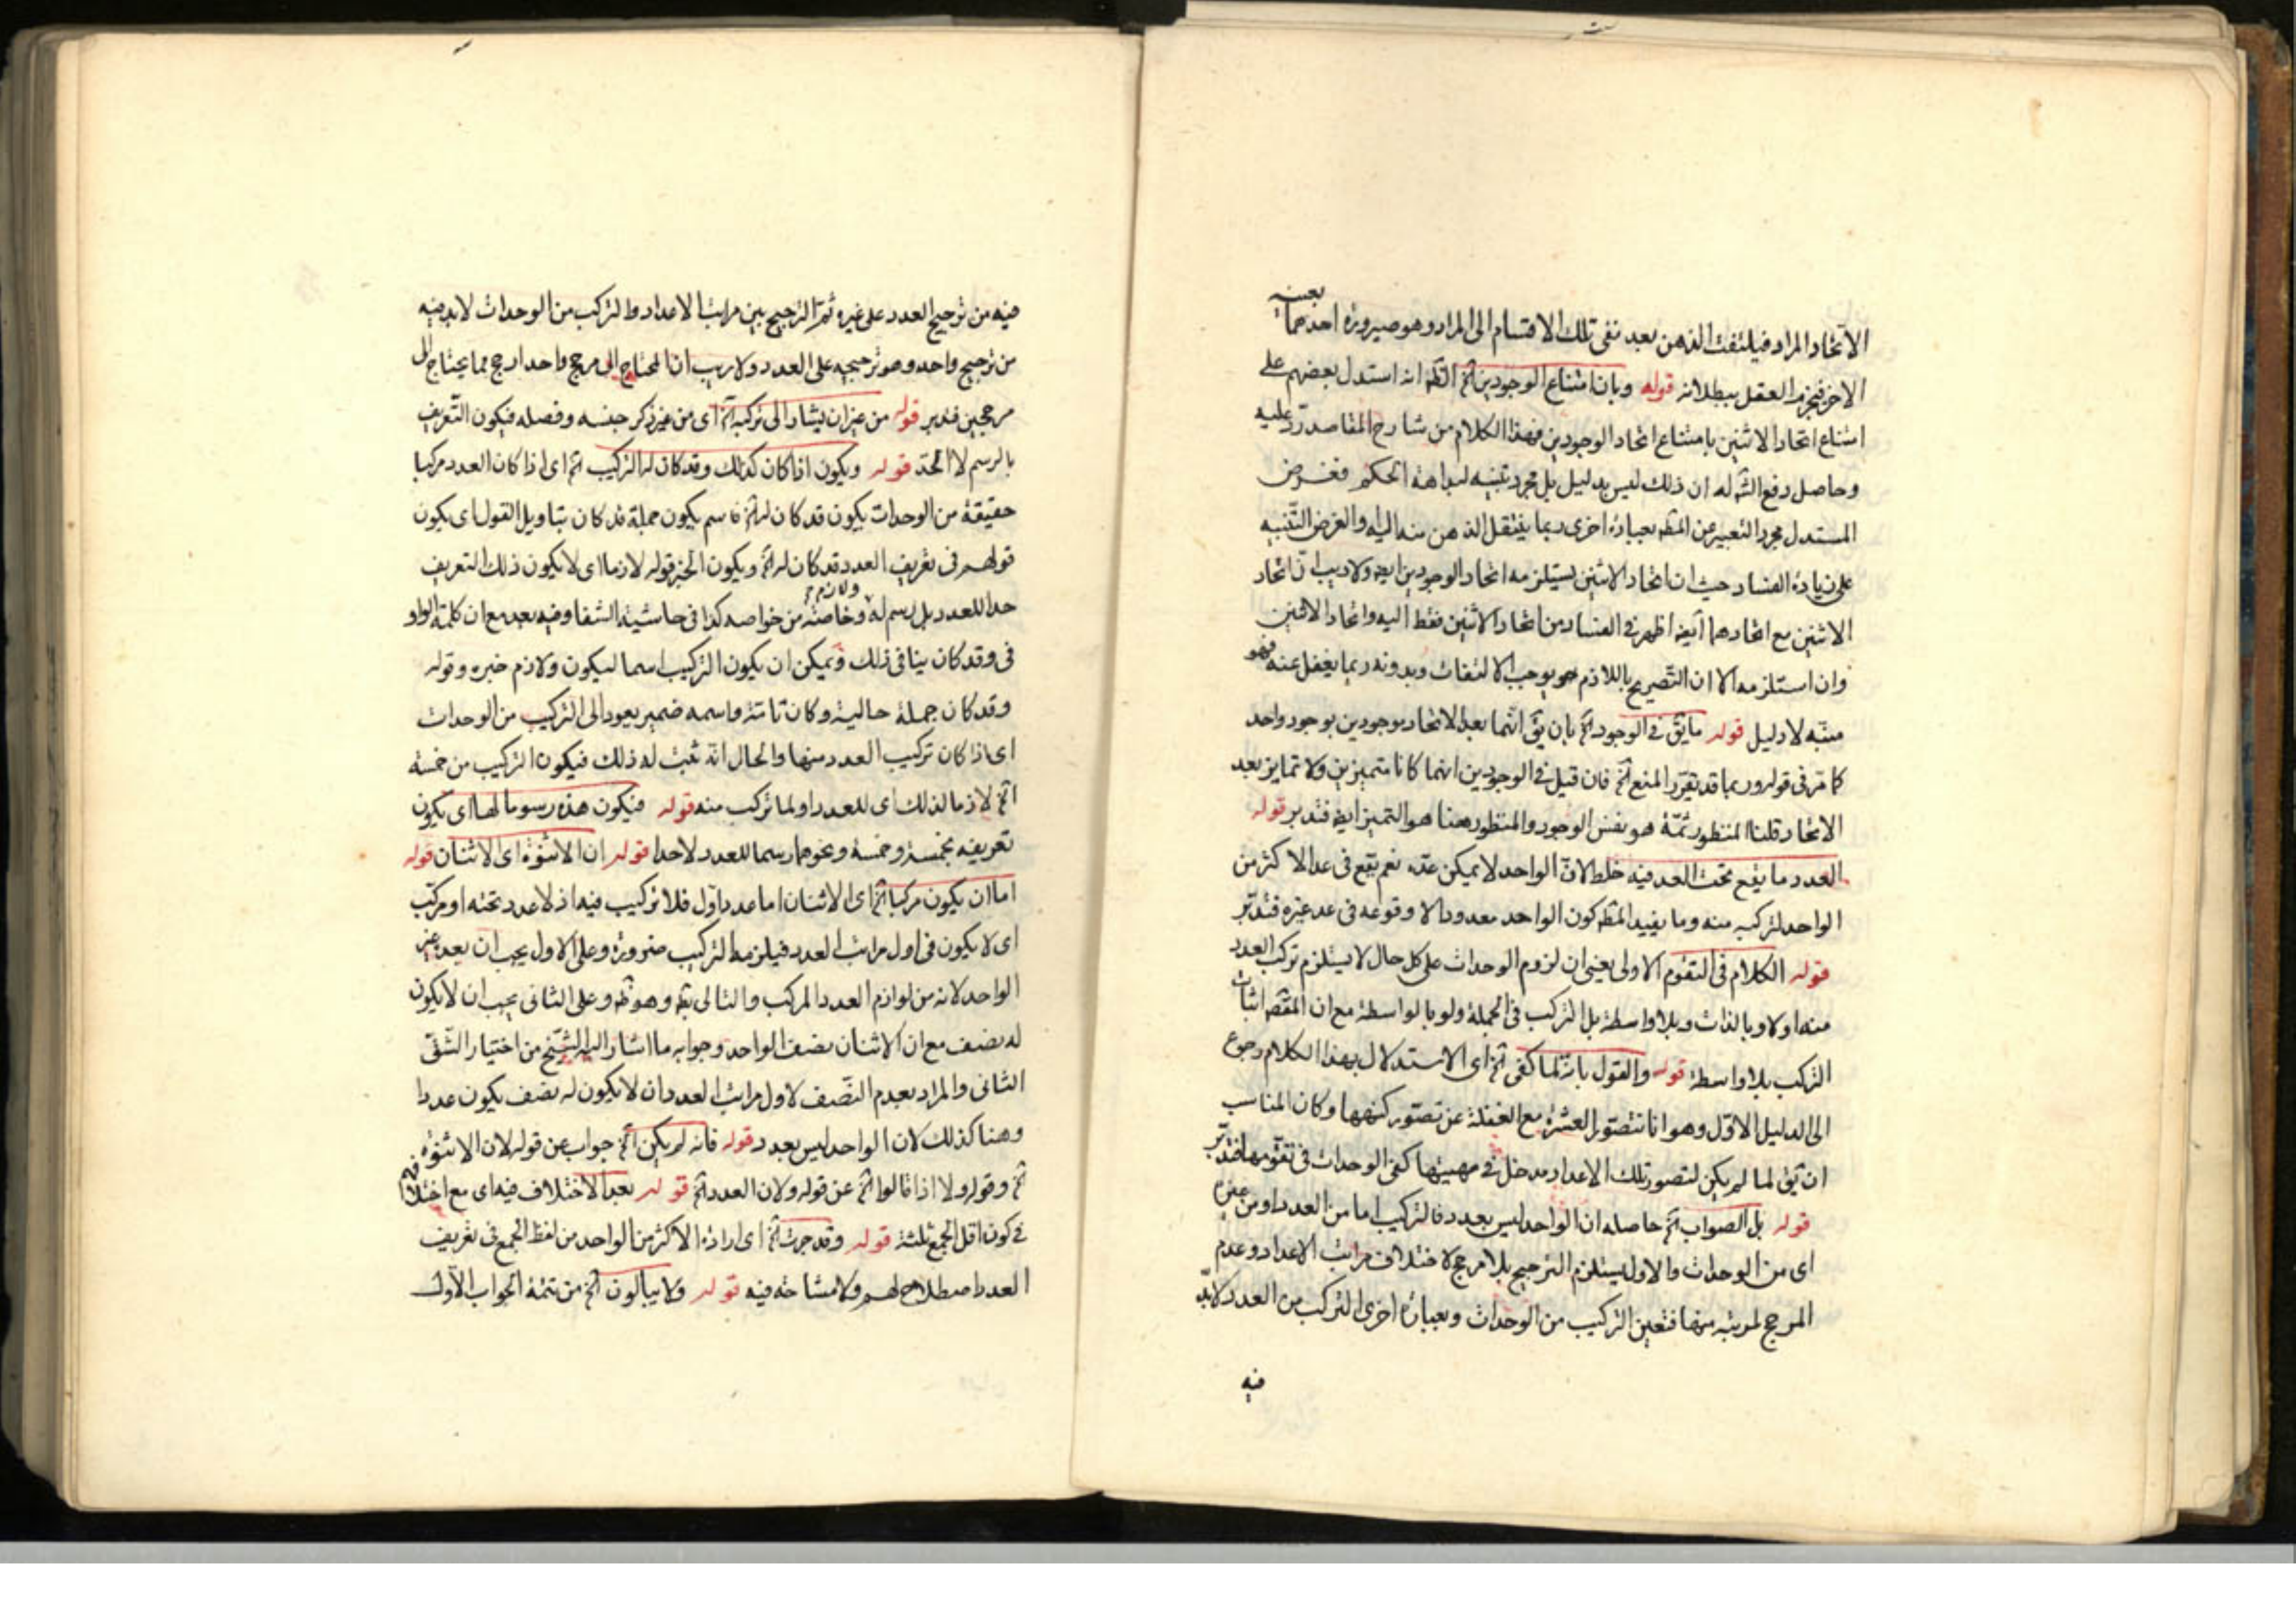 الاتحاد المراد فيلتفت الذهن بعد نفى تلك الاقسام الى المراد وهو صيرورة احدهما بعينه
الاخر فيجزم العقل ببطلانه قوله وبان امتناع الوجودين آه الظ انه استدل بعضهم على
امتناع اتحاد الاثنين بامتناع اتحاد الوجودين فهذا الكلام من شارح المقاصد رد عليه
وحاصل دفع الش له ان ذلك ليس بدليل بل مجرد تنبيه لبداهة الحكم فغرض
المستدل مجرد التعبير عن المط بعبارة اخرى ربما ينتقل الذهن منه اليه والغرض التنبيه
على زيادة الفساد حيث ان اتحاد الاثنين يستلزمه اتحاد الوجودين ايض ولا ريب ان اتحاد
الاثنين مع اتحادهما ايض اظهر فى الفساد من اتحاد الاثنين فقط اليه واتحاد الاثنين
وان استلزمه الا ان التصريح باللازم يوجب الالتفات وبدونه ربما يغفل عنه فهو
منبه لا دليل قوله مايق فى الوجود آه بان يق انهما بعد الاتحاد موجودين بوجود واحد
كما مر فى قوله وربما قد يقرر المنع آه فان قيل فى الوجودين انهما كانا متميزين ولا تمايز بعد
الاتحاد قلنا المنظور ثمة هو نفس الوجود والمنظور ههنا هو التميز ايض فتدبر قوله
العدد ما يقع تحت العد فيه خلط لان الواحد لا يمكن عده نعم يقع فى عد الاكثر من
الواحد لتركبه منه وما يفيد المط كون الواحد معدودا لا وقوعه فى عد غيره فتدبر
قوله الكلام فى التقوم الاولى يعنى ان لزوم الوحدات على كل حال لا يستلزم تركب العدد
منها اولا وبالذات وبلا واسطة بل التركب فى الجملة ولو بالواسطة مع ان المقص اثبات
التركب بلا واسطة قوله والقول بانه لما كفى آه اى الاستدلال بهذا الكلام رجوع
الى الدليل الاول وهو انا نتصور العشرة مع الغفلة عن تصور كنهها وكان المناسب
ان يق لما لم يكن لتصور تلك الاعداد مدخل فى مهيتها كفى الوحدات فى تقومها فتدبر
قوله بل الصواب آه حاصله ان الواحد ليس بعدد فالتركيب اما من العدد او من غيره
اى من الوحدات والاول يستلزم الترجيح بلا مرجح لاختلاف مراتب الاعداد وعدم
المرجح لمرتبة منها فتعين التركيب من الوحدات وبعبارة اخرى التركب من العدد لا بد
فيه
فيه من ترجيح العدد على غيره ثم الترجيح بين مراتب الاعداد والتركب من الوحدات لابد فيه
من ترجيح واحد وهو ترجيحه على العدد ولا ريب ان المحتاج الى مرجح واحد ارجح مما يحتاج الى
مرجحين فتدبر قوله من غير ان يشار الى تركبه آه اى من غير ذكر جنسه وفصله فيكون التعريف
بالرسم لا الحد قوله ويكون اذا كان كذلك وقد كان له التركيب آه اى اذا كان العدد مركبا
حقيقة من الوحدات يكون قد كان له آه فاسم يكون جملة قد كان بتاويل القول اى يكون
قولهم فى تعريف العدد قد كان له آه ويكون الخبر قوله لازما اى لا يكون ذلك التعريف
حدا للعدد بل رسم له ولازم وخاصة من خواصه كذا فى حاشية الشفا وفيه بعد مع ان كلمة الواو
فى وقد كان ينافى ذلك ويمكن ان يكون التركيب اسما ليكون ولازم خبره وقوله
وقد كان جملة حالية وكان تامة واسمه ضمير يعود الى التركيب من الوحدات
اى اذا كان تركيب العدد منها والحال انه ثبت له ذلك فيكون التركيب من خمسة
آه لازما لذلك اى للعدد او لما تركب منه قوله فيكون هذه رسوما لها اى يكون
تعريفه بخمسة وخمسة ونحوهما رسما للعدد لاحدا قوله ان الاثنوة اى الاثنان قوله
اما ان يكون مركبا آه اى الاثنان اما عدد اول فلا تركيب فيه اذ لا عدد تحته او مركب
اى لا يكون فى اول مراتب العدد فيلزمه التركيب ضرورة وعلى الاول يجب ان يعده غير
الواحد لانه من لوازم العدد المركب والتالى بط وهو ظ وعلى الثانى يجب ان لا يكون
له نصف مع ان الاثنان نصف الواحد وجوابه ما اشار اليه الشيخ من اختيار الشق
الثانى والمراد بعدم النصف لاول مراتب العدد ان لا يكون له نصف يكون عددا
وهنا كذلك لان الواحد ليس بعدد قوله فانه لم يكن آه جواب عن قوله لان الاثنوة
آه وقوله ولا اذا قالوا آه عن قوله ولان العدد آه قوله بعد الاختلاف فيه اى مع اختلافهم
فى كون اقل الجمع ثلثة قوله وقد جرت آه اى ارادة الاكثر من الواحد من لفظ الجمع فى تعريف
العدد اصطلاح لهم ولا مشاحة فيه قوله ولا يبالون آه من تتمة الجواب الاول